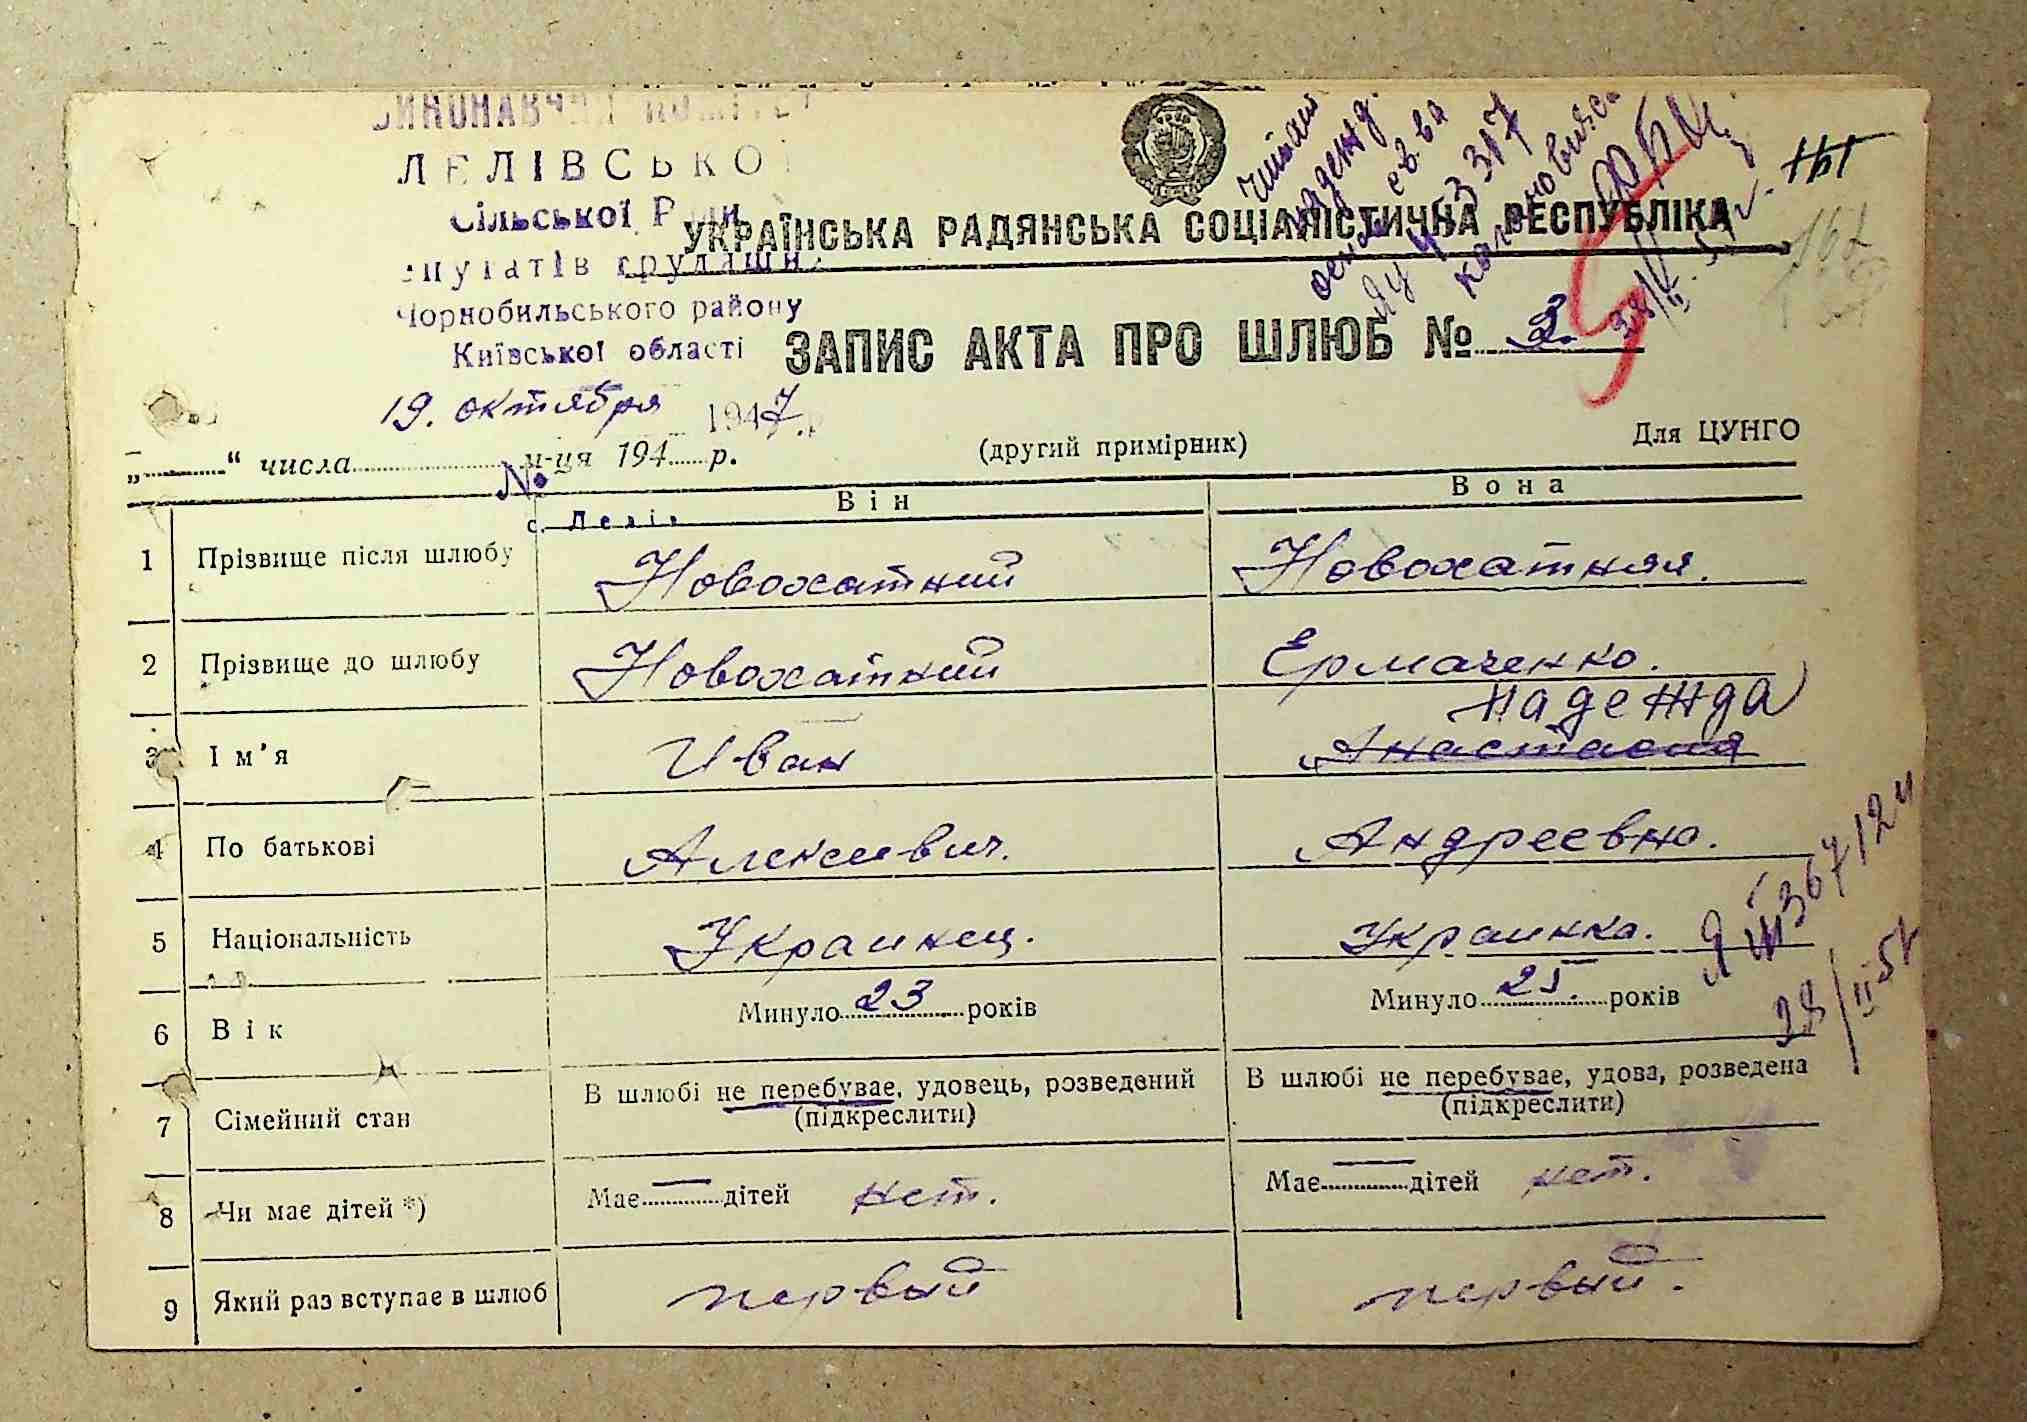 ВИКОНАВЧИЙ КОМІТЕТ
ЛЕЛІВСЬКОЇ
Сільської Ради
депутатів трудящих
Чорнобильського району
Київської області
УКРАЇНСЬКА РАДЯНСЬКА СОЦІАЛІСТИЧНА РЕСПУБЛІКА
ЗАПИС АКТА ПРО ШЛЮБ № 3.
19. октября 1947 р.
„ “ числа м-ця 194 р.
(другий примірник)
Для ЦУНГО
№
с. Лелів
Він Вона
1 Прізвище після шлюбу Новохатний Новохатняя.
2 Прізвище до шлюбу Новохатний Ермаченко.
Надежда
3 Ім’я Иван Анастасия
4 По батькові Алексеевич. Андреевна.
5 Національність Украинец. Украинка.
6 Вік Минуло 23 років Минуло 25. років
28/II-51
7 Сімейний стан В шлюбі не перебуває, удовець, розведений (підкреслити) В шлюбі не перебуває, удова, розведена (підкреслити)
8 Чи має дітей *) Має — дітей нет. Має — дітей нет.
9 Який раз вступає в шлюб первый первый.